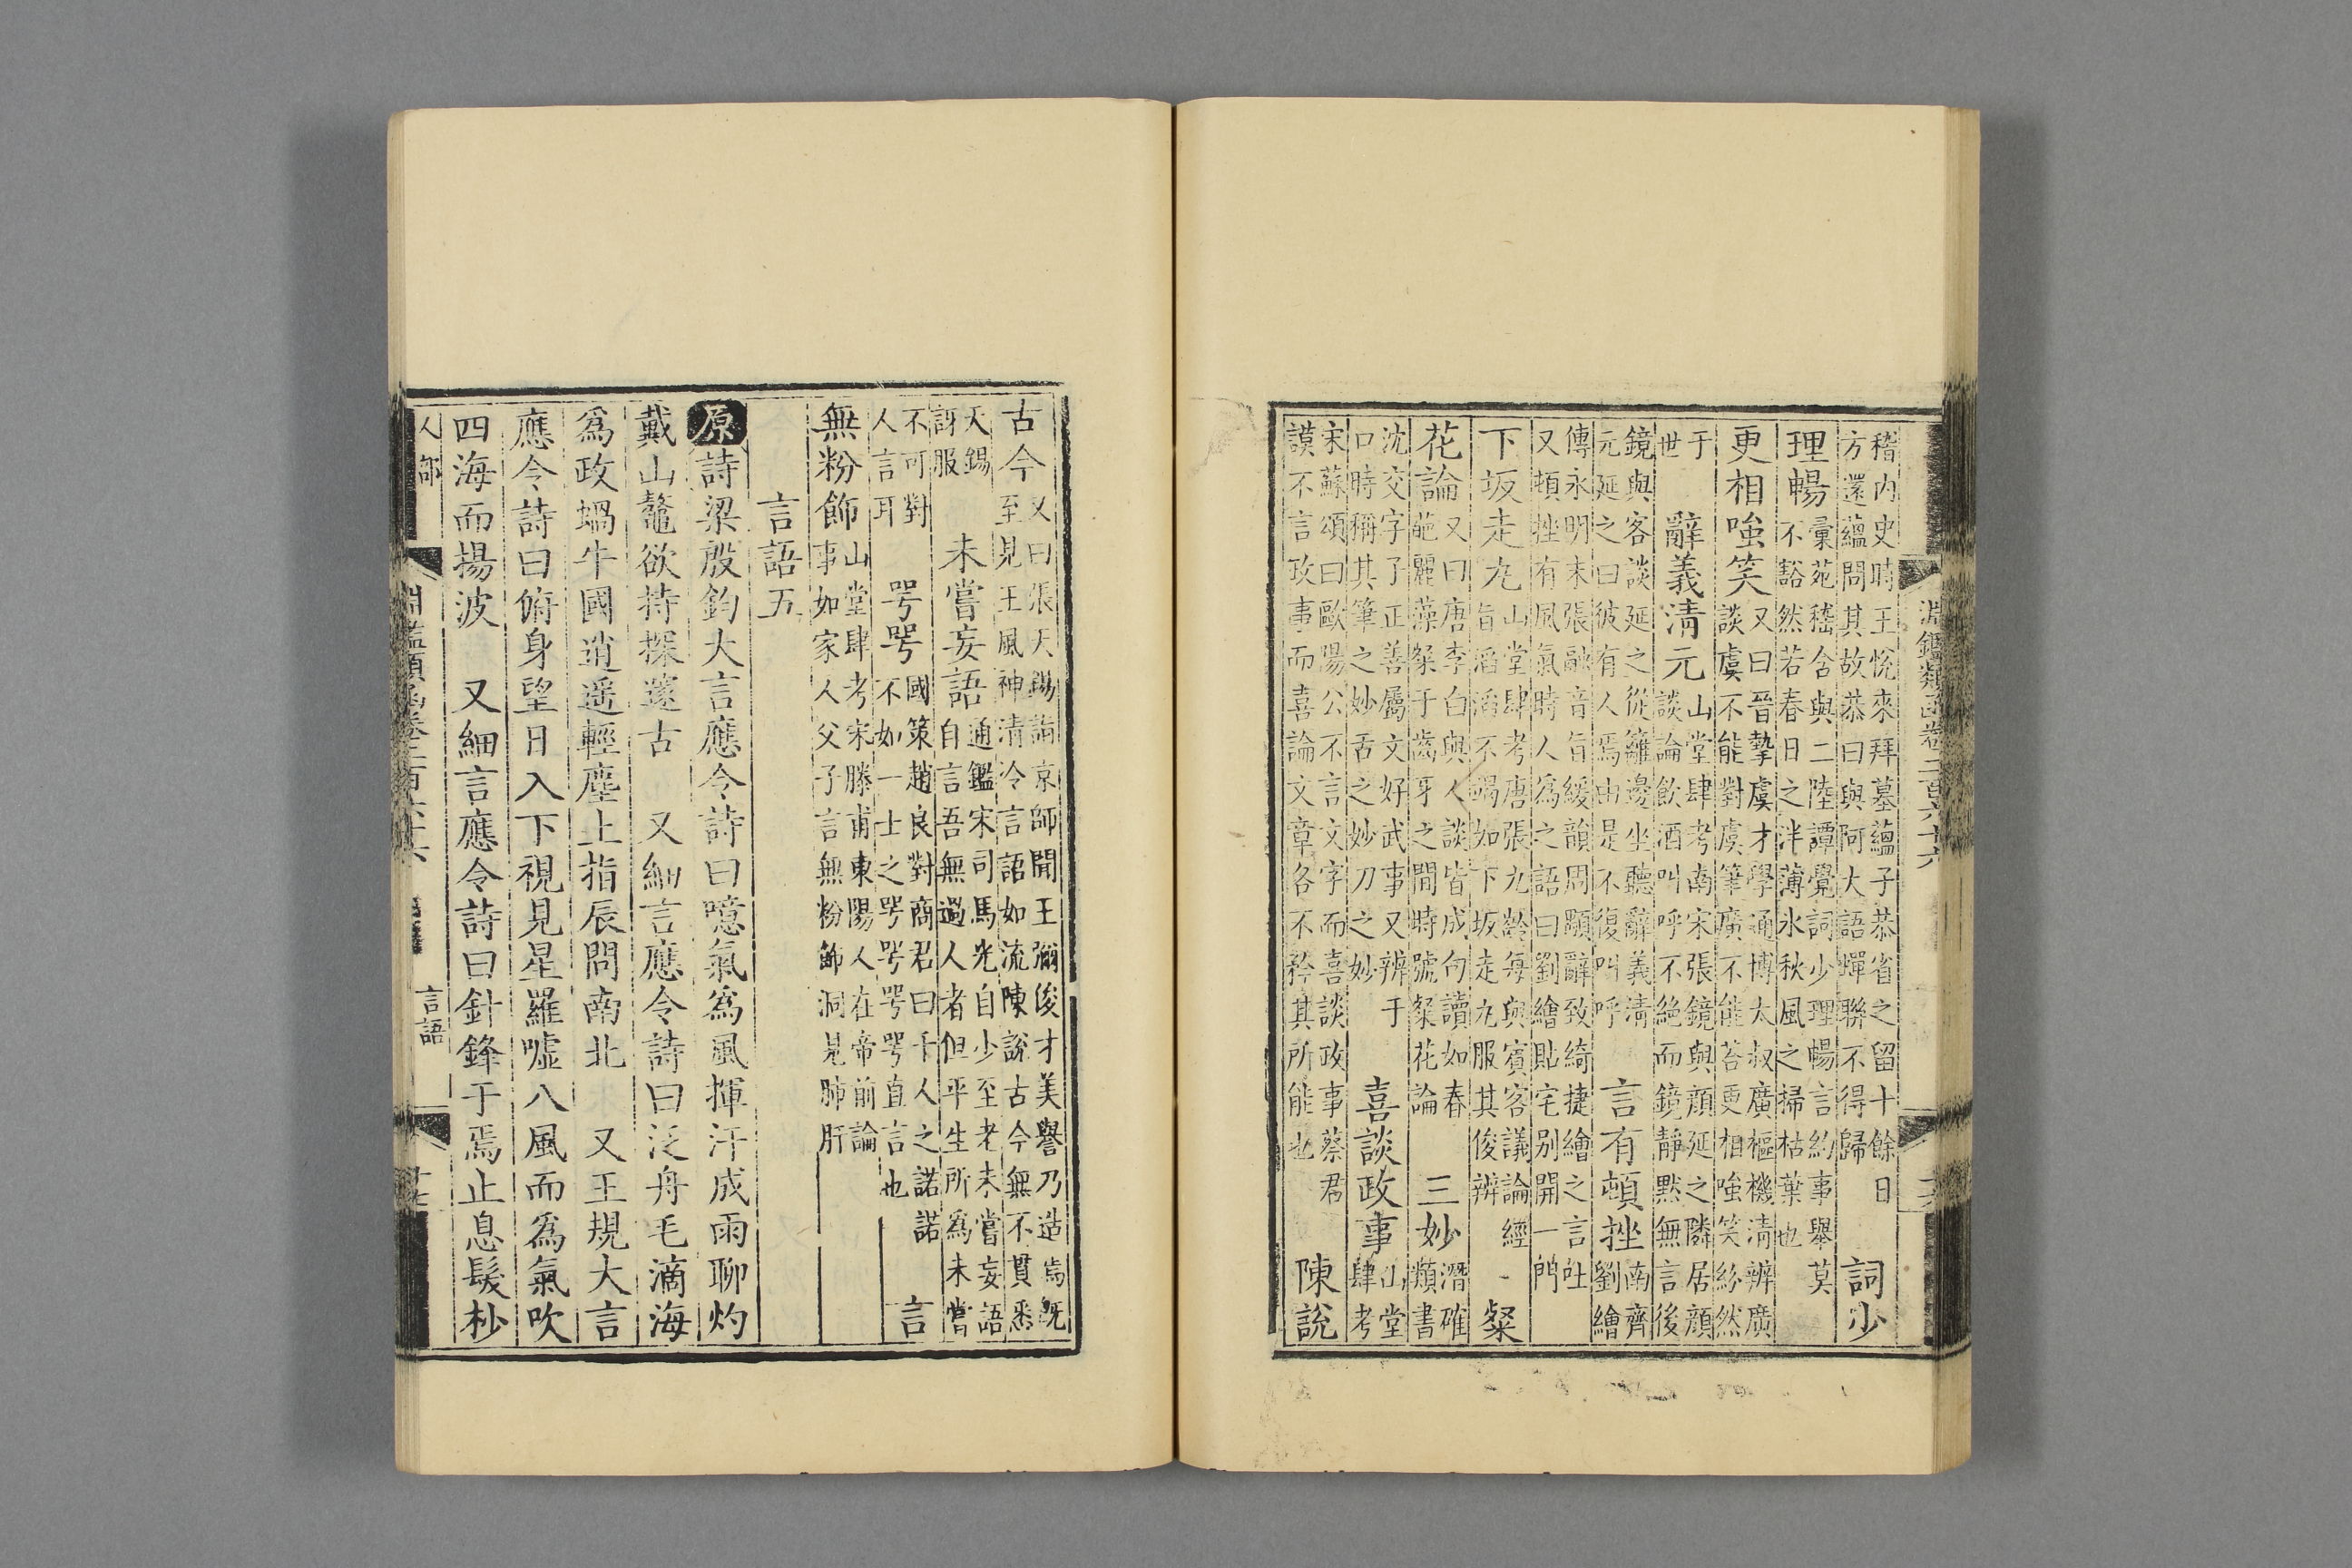 淵鑑類函卷二百六十六 十六
稽内史時王悅來拜墓蘊子恭省之留十餘日方還蘊問其故恭曰與阿大語蟬聯不得歸 詞少
理暢 彙苑嵇含與二陸譚覺詞少理暢言約事舉莫不豁然若春日之泮薄氷秋風之掃枯葉也
更相嗤笑 又曰晉摯虞才學通博太叔廣樞機清辨廣談虞不能對虞筆廣不能荅更相嗤笑紛然
于世 辭義清元 山堂肆考南宋張鏡與顏延之隣居顏談論飲酒叫呼不絶而鏡靜默無言後
鏡與客談延之從籬邊坐聽辭義清元延之曰彼有人焉由是不復叫呼 言有頓挫 南齊劉繪
傳永明末張融音旨緩韻周顒辭致綺捷繪之言吐又頓挫有風氣時人為之語曰劉繪貼宅别開一門
下坂走丸 山堂肆考唐張九齡每與賓客議論經旨滔滔不竭如下坂走丸服其俊辨 粲
花論 又曰唐李白與人談皆成句讀如春葩麗藻粲于齒牙之間時號粲花論 三妙 潛確類書
沈交字子正善屬文好武事又辨于口時稱其筆之妙舌之妙刀之妙 喜談政事 山堂肆考
宋蘇頌曰歐陽公不言文字而喜談政事蔡君謨不言政事而喜論文章各不矜其所能也 陳説
古今 又曰張天錫詣京師聞王彌俊才美譽乃造焉既至見王風神清令言語如流陳説古今無不貫悉
天錫訝服 未嘗妄語 通鑑宋司馬光自少至老未嘗妄語自言吾無過人者但平生所為未嘗
不可對人言耳 咢咢 國策趙良對商君曰千人之諾諾不如一士之咢咢咢咢直言也 言
無粉飾 山堂肆考宋滕甫東陽人在帝前論事如家人父子言無粉飾洞見肺肝
言語五
原詩梁殷鈞大言應令詩曰噫氣為風揮汗成雨聊灼
戴山鼇欲持探邃古 又細言應令詩曰泛舟毛滴海
為政蝸牛國逍遥輕塵上指辰問南北 又王規大言
應令詩曰俯身望日入下視見星羅噓八風而為氣吹
四海而揚波 又細言應令詩曰針鋒于焉止息髮杪
人部 淵鑑類函卷二百六十六 言語